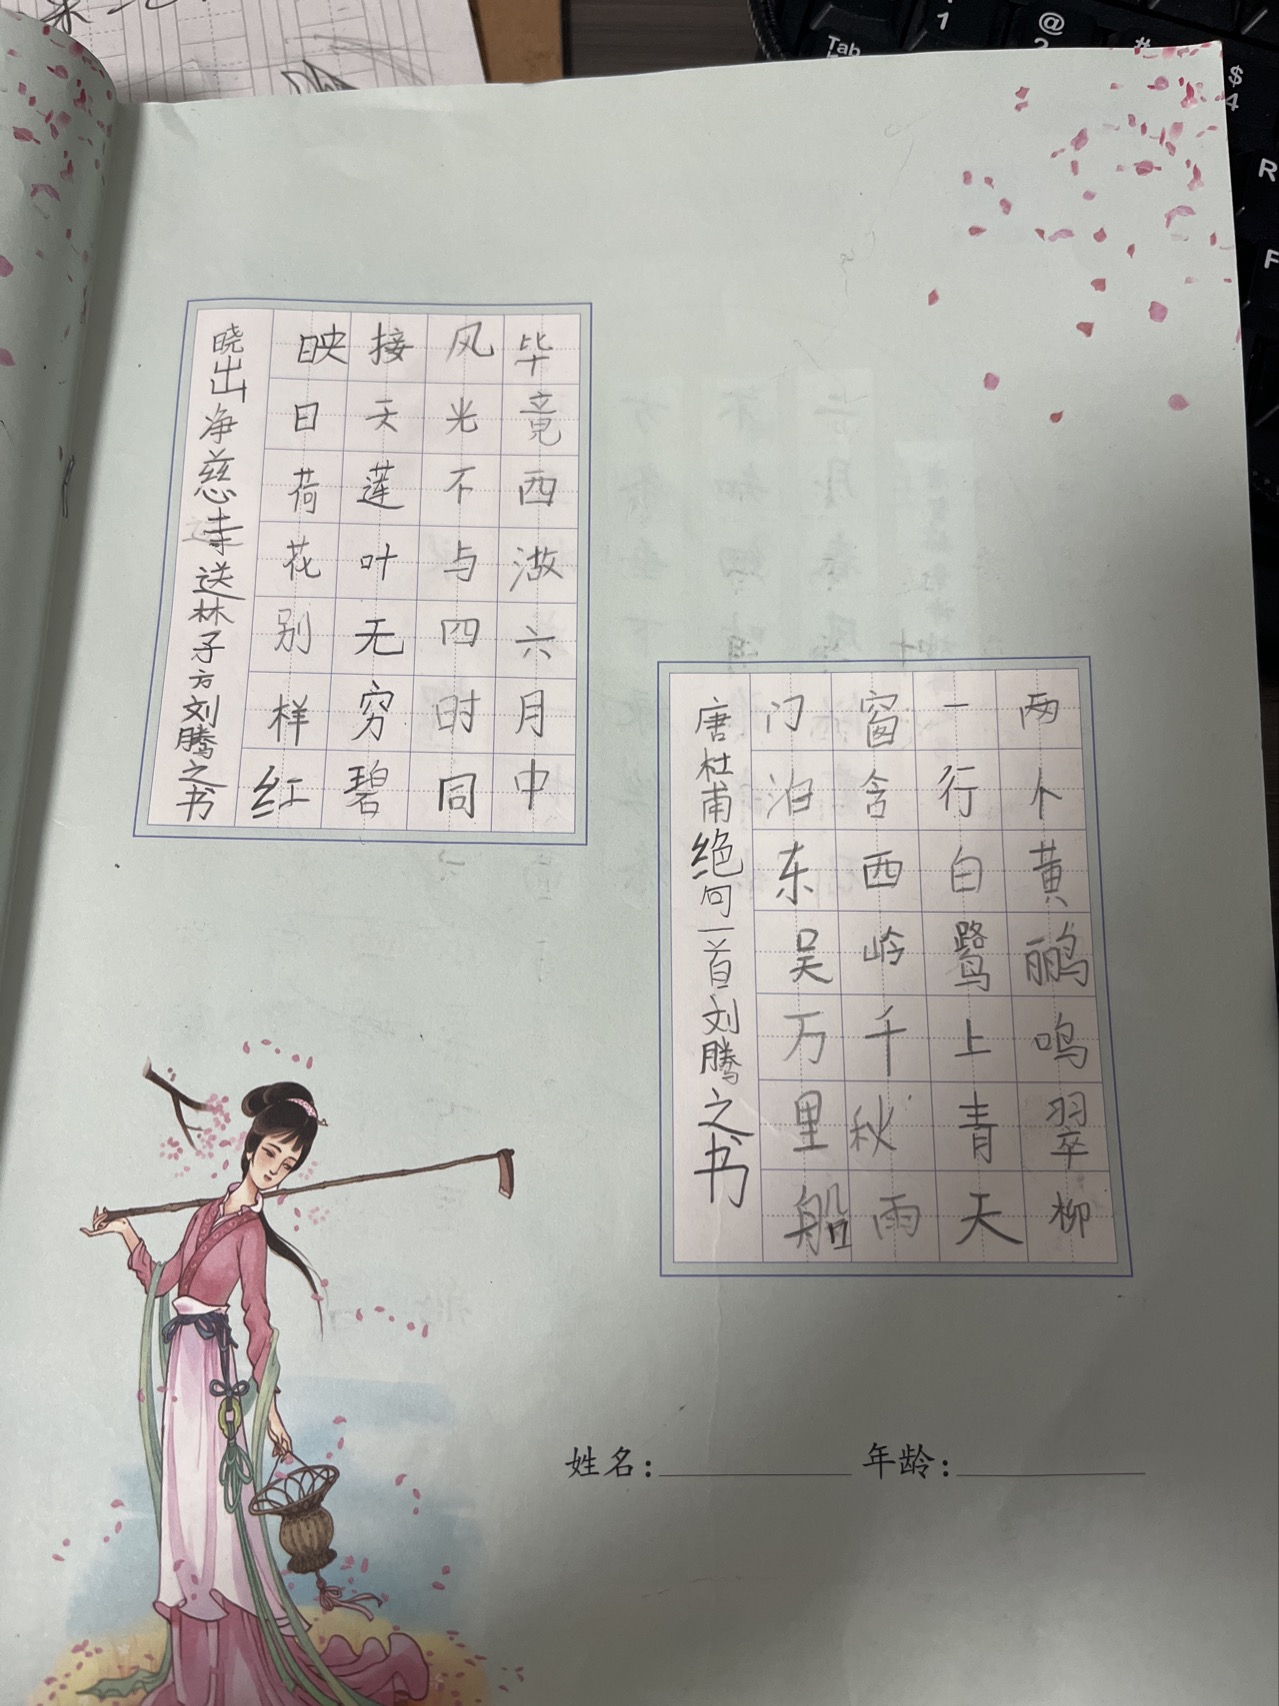 毕竟西湖六月中
风光不与四时同
接天莲叶无穷碧
映日荷花别样红
晓出净慈寺送林子方刘腾之书
两个黄鹂鸣翠柳
一行白鹭上青天
窗含西岭千秋雨
门泊东吴万里船
唐杜甫绝句一首刘腾之书
姓名： 年龄：
Tab
1
@
2
#
$
4
R
F